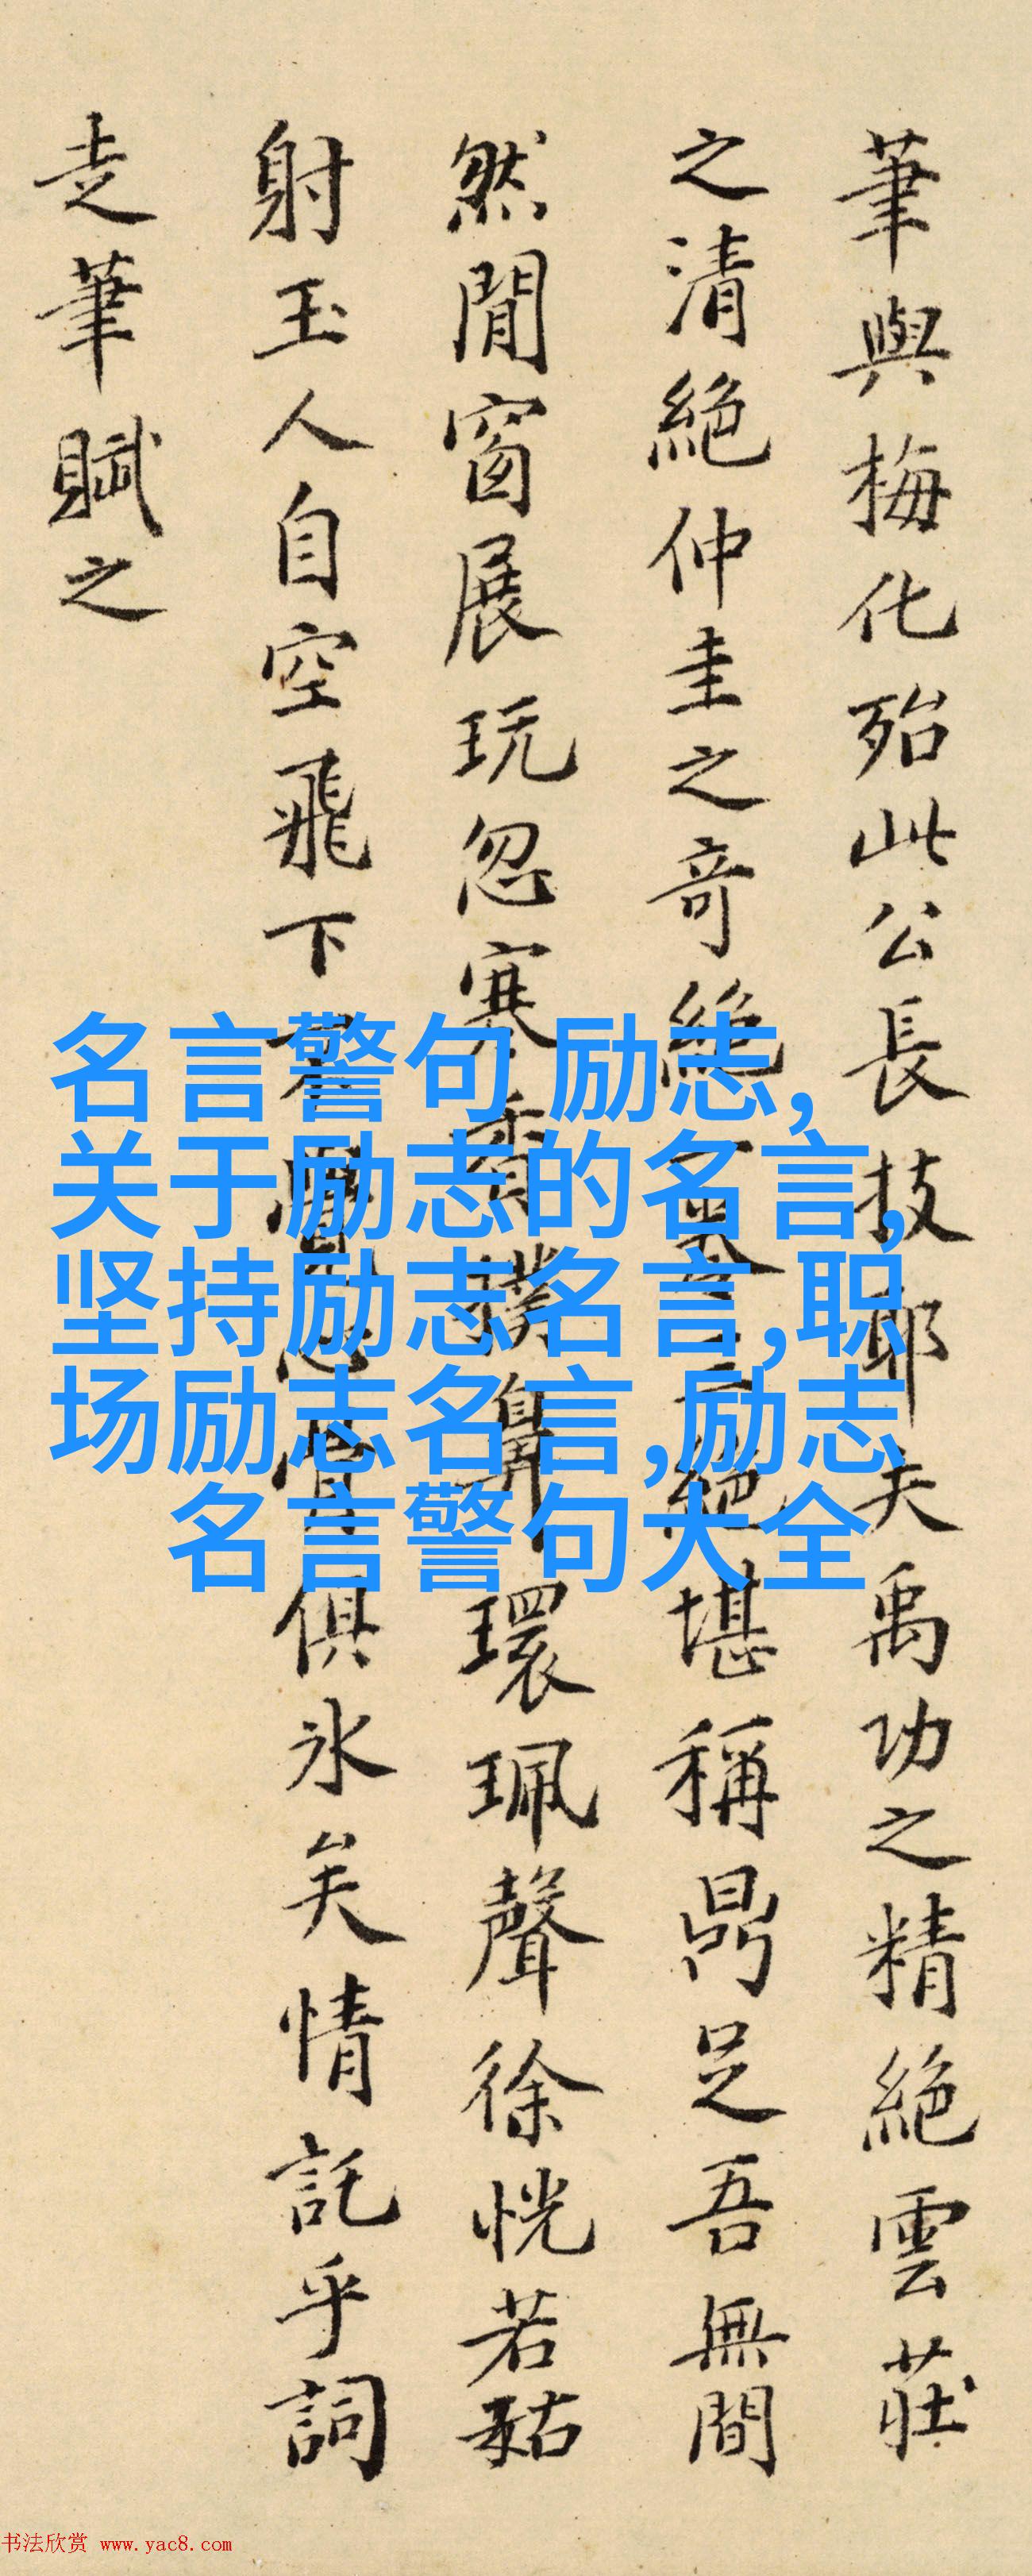 筆與梅化殆此公長技耶夫禹功之精絕雲莊
之清絕仲圭之奇絕堪稱鼎足吾無間
然閒窗展玩忽寒香撲鼻環珮聲徐恍若藐姑
射玉人自空飛下俱氷矣情託乎詞
走筆賦之
名言警句 励志,
关于励志的名言,
坚持励志名言,职
场励志名言,励志
名言警句大全
书法欣赏 www.yac8.com